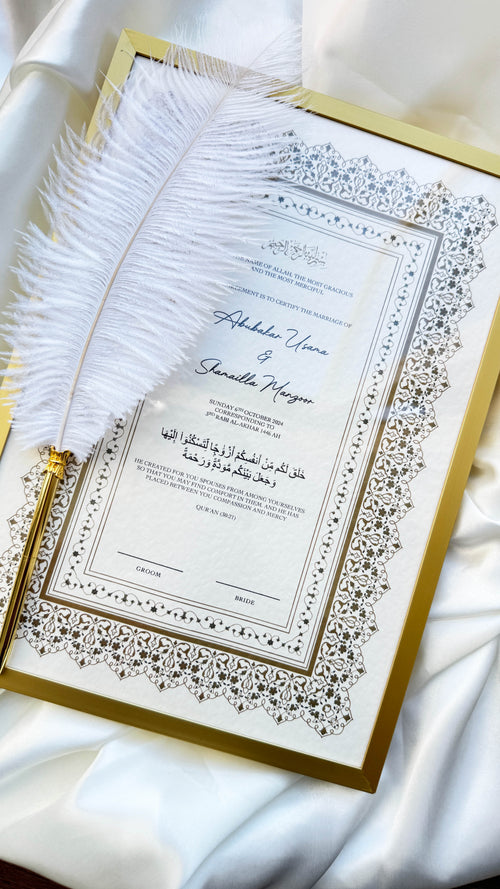 بسم الله الرحمن الرحيم
NAME OF ALLAH, THE MOST GRACIOUS
AND THE MOST MERCIFUL
IS TO CERTIFY THE MARRIAGE OF
Abubakar Usama
&
Shamailla Manzoor
SUNDAY 6TH OCTOBER 2024
CORRESPONDING TO
3RD RABI AL-AKHAR 1446 AH
خَلَقَ لَكُم مِّنْ أَنفُسِكُمْ أَزْوَاجًا لِّتَسْكُنُوٓا۟ إِلَيْهَا
وَجَعَلَ بَيْنَكُم مَّوَدَّةً وَرَحْمَةً
HE CREATED FOR YOU SPOUSES FROM AMONG YOURSELVES
SO THAT YOU MAY FIND COMFORT IN THEM. AND HE HAS
PLACED BETWEEN YOU COMPASSION AND MERCY
QUR'AN (30:21)
GROOM
BRIDE